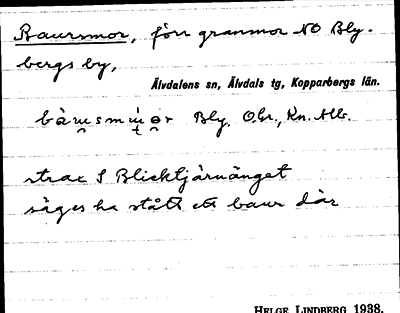 Baursmor, förr granmor NO Bly-
bergs by,
Älvdalens sn, Älvdals tg, Kopparbergs län.
Bly. O.Gr., Kn. Alb.
strax S Blicktjärnänget
säges ha stått ett baur där
HELGE LINDBERG 1938.